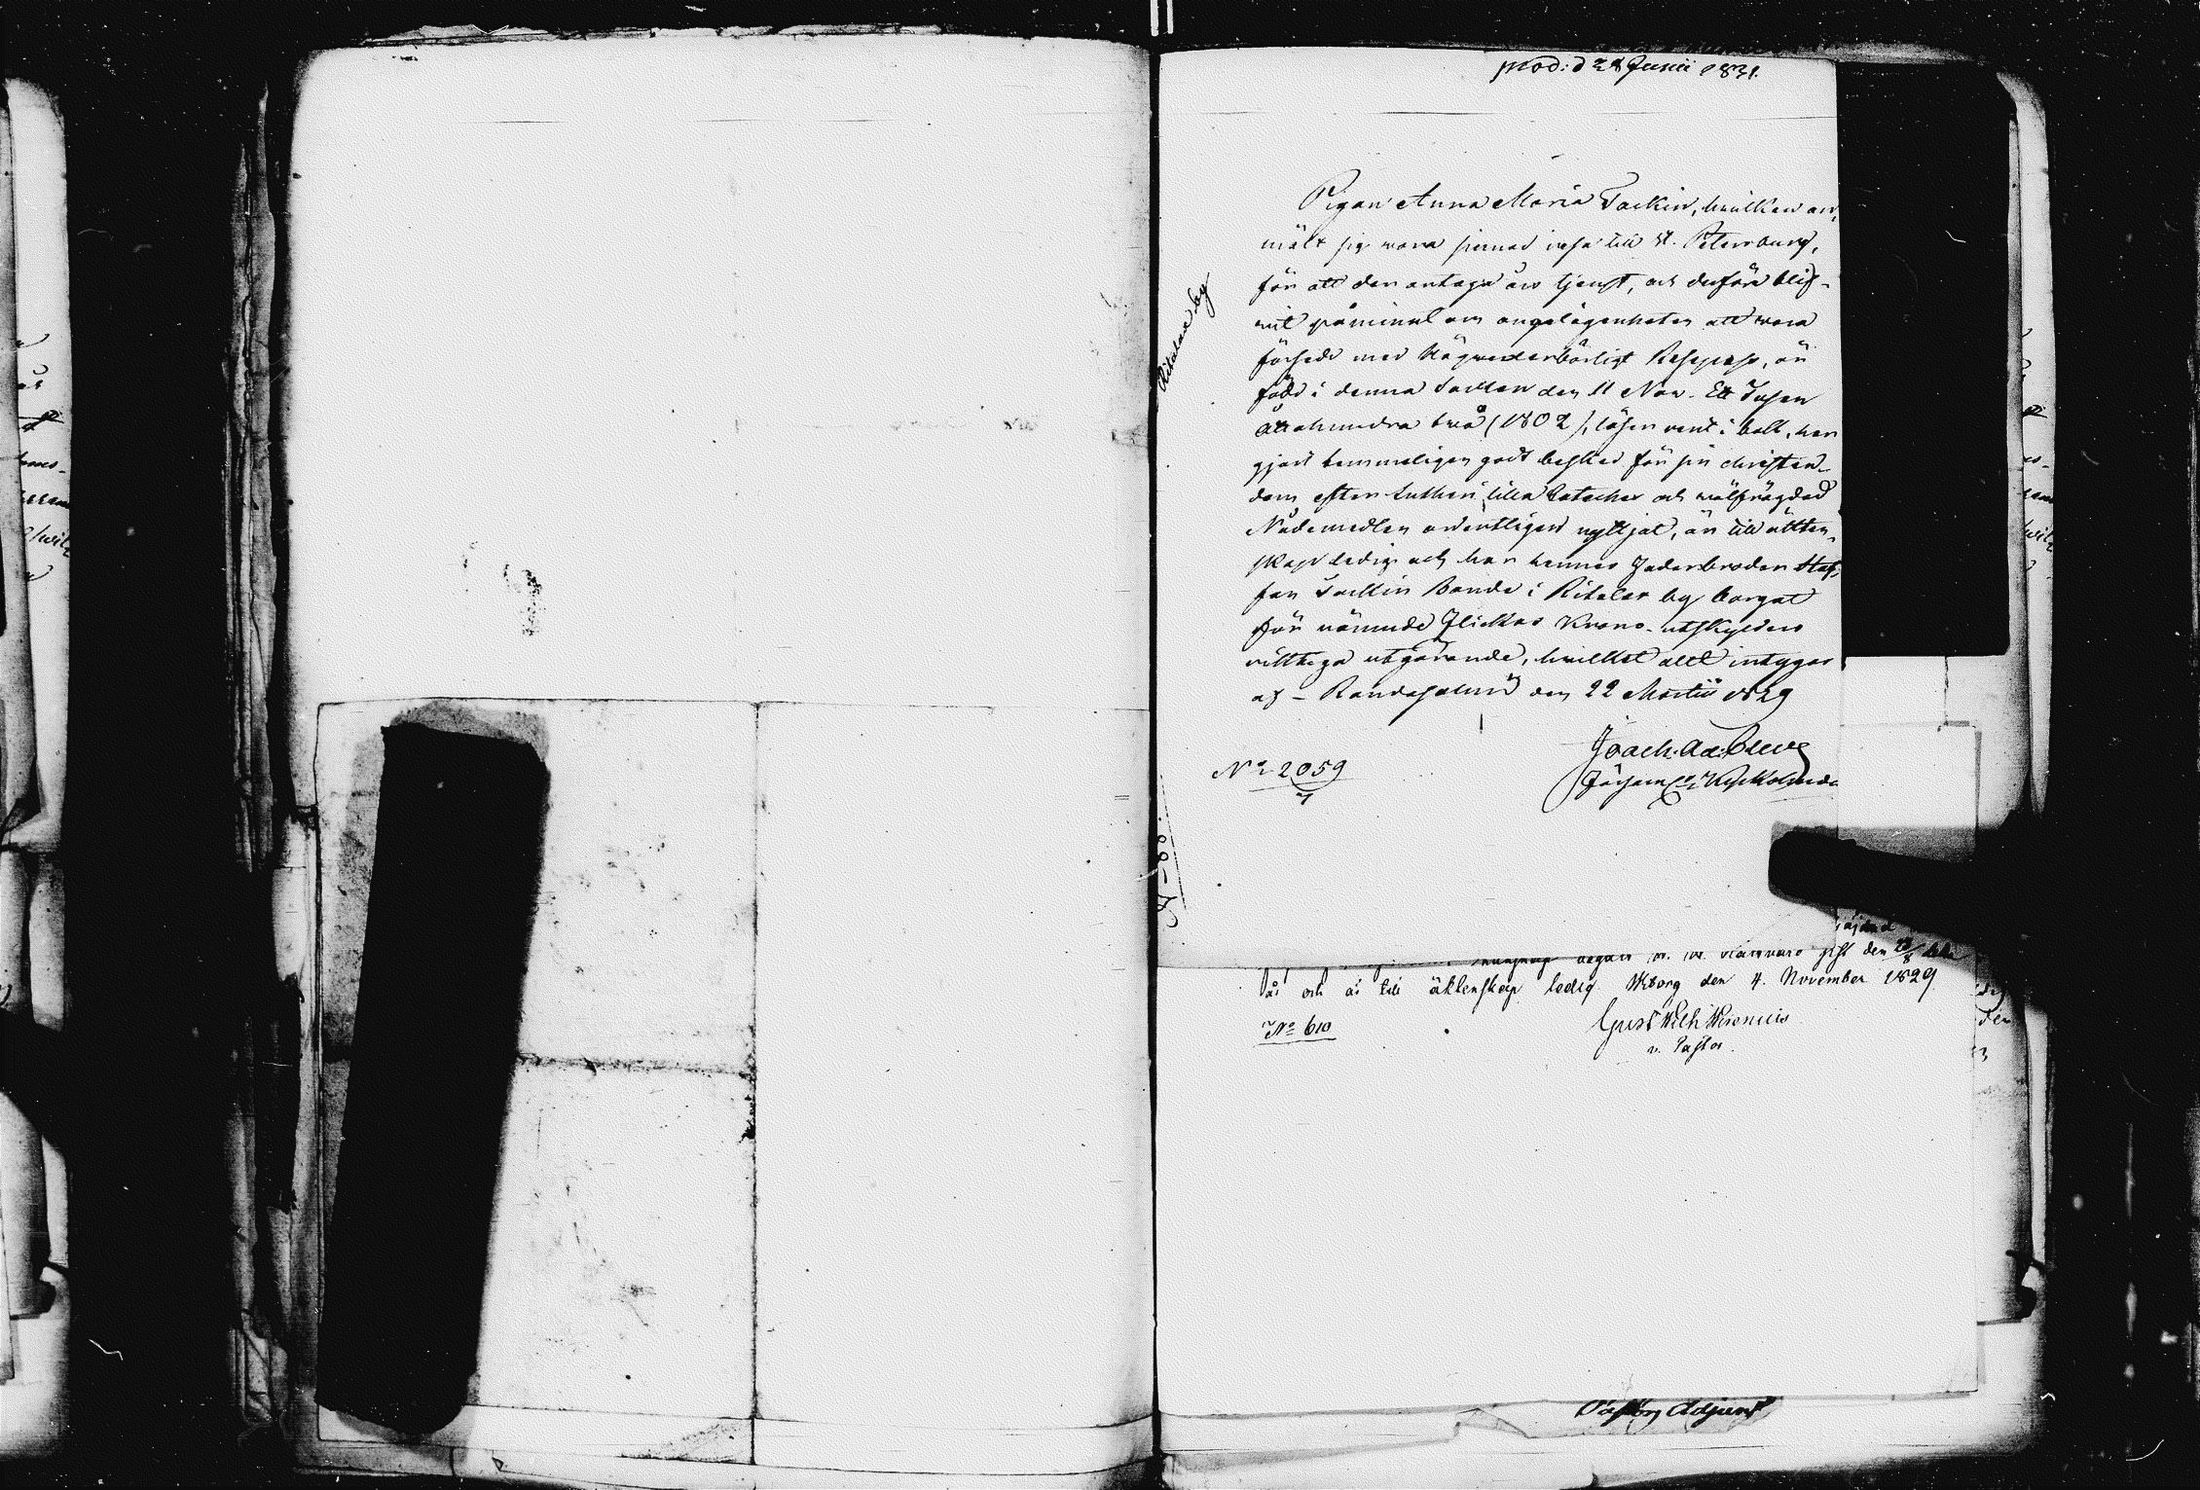 prod: d 28 Junii 1831.
Pigan Anna Maria Tackin, hwilken an,
mält sig wara sinnad resa till St. Petersburg,
för att der antaga års tjenst, och derföre blif-
wit påmind om angelägenheten att wara
försedd med Högwederbörligt Respass, är
född i denna Socken den 11 Nov. Ett Tusen
åttahundra twå (1802), läser rent i bok, har
gjort temmeligen godt besked för sin christen-
dom efter Lutheri lilla Cateches och
Nådemedlen ordentligen nyttjat, är till äkten-
skap ledig och har hennes Faderbroder Staf,
fan Tackin Bonde i Ritalax by borgat
för nämnde Flickas Krono-utskylders
riktiga utgörande, hwilket allt intygas
af - Randasalmi den 22 Martii 1829
Joach. Ad. Cleve
Ritalax by
No 2059
7
den
år och är till äktenskap ledig. Wiborg den 4. November 1829.
No 610
Gust Wilh Wirenius
v. Pastor.
Pastors Adjunct